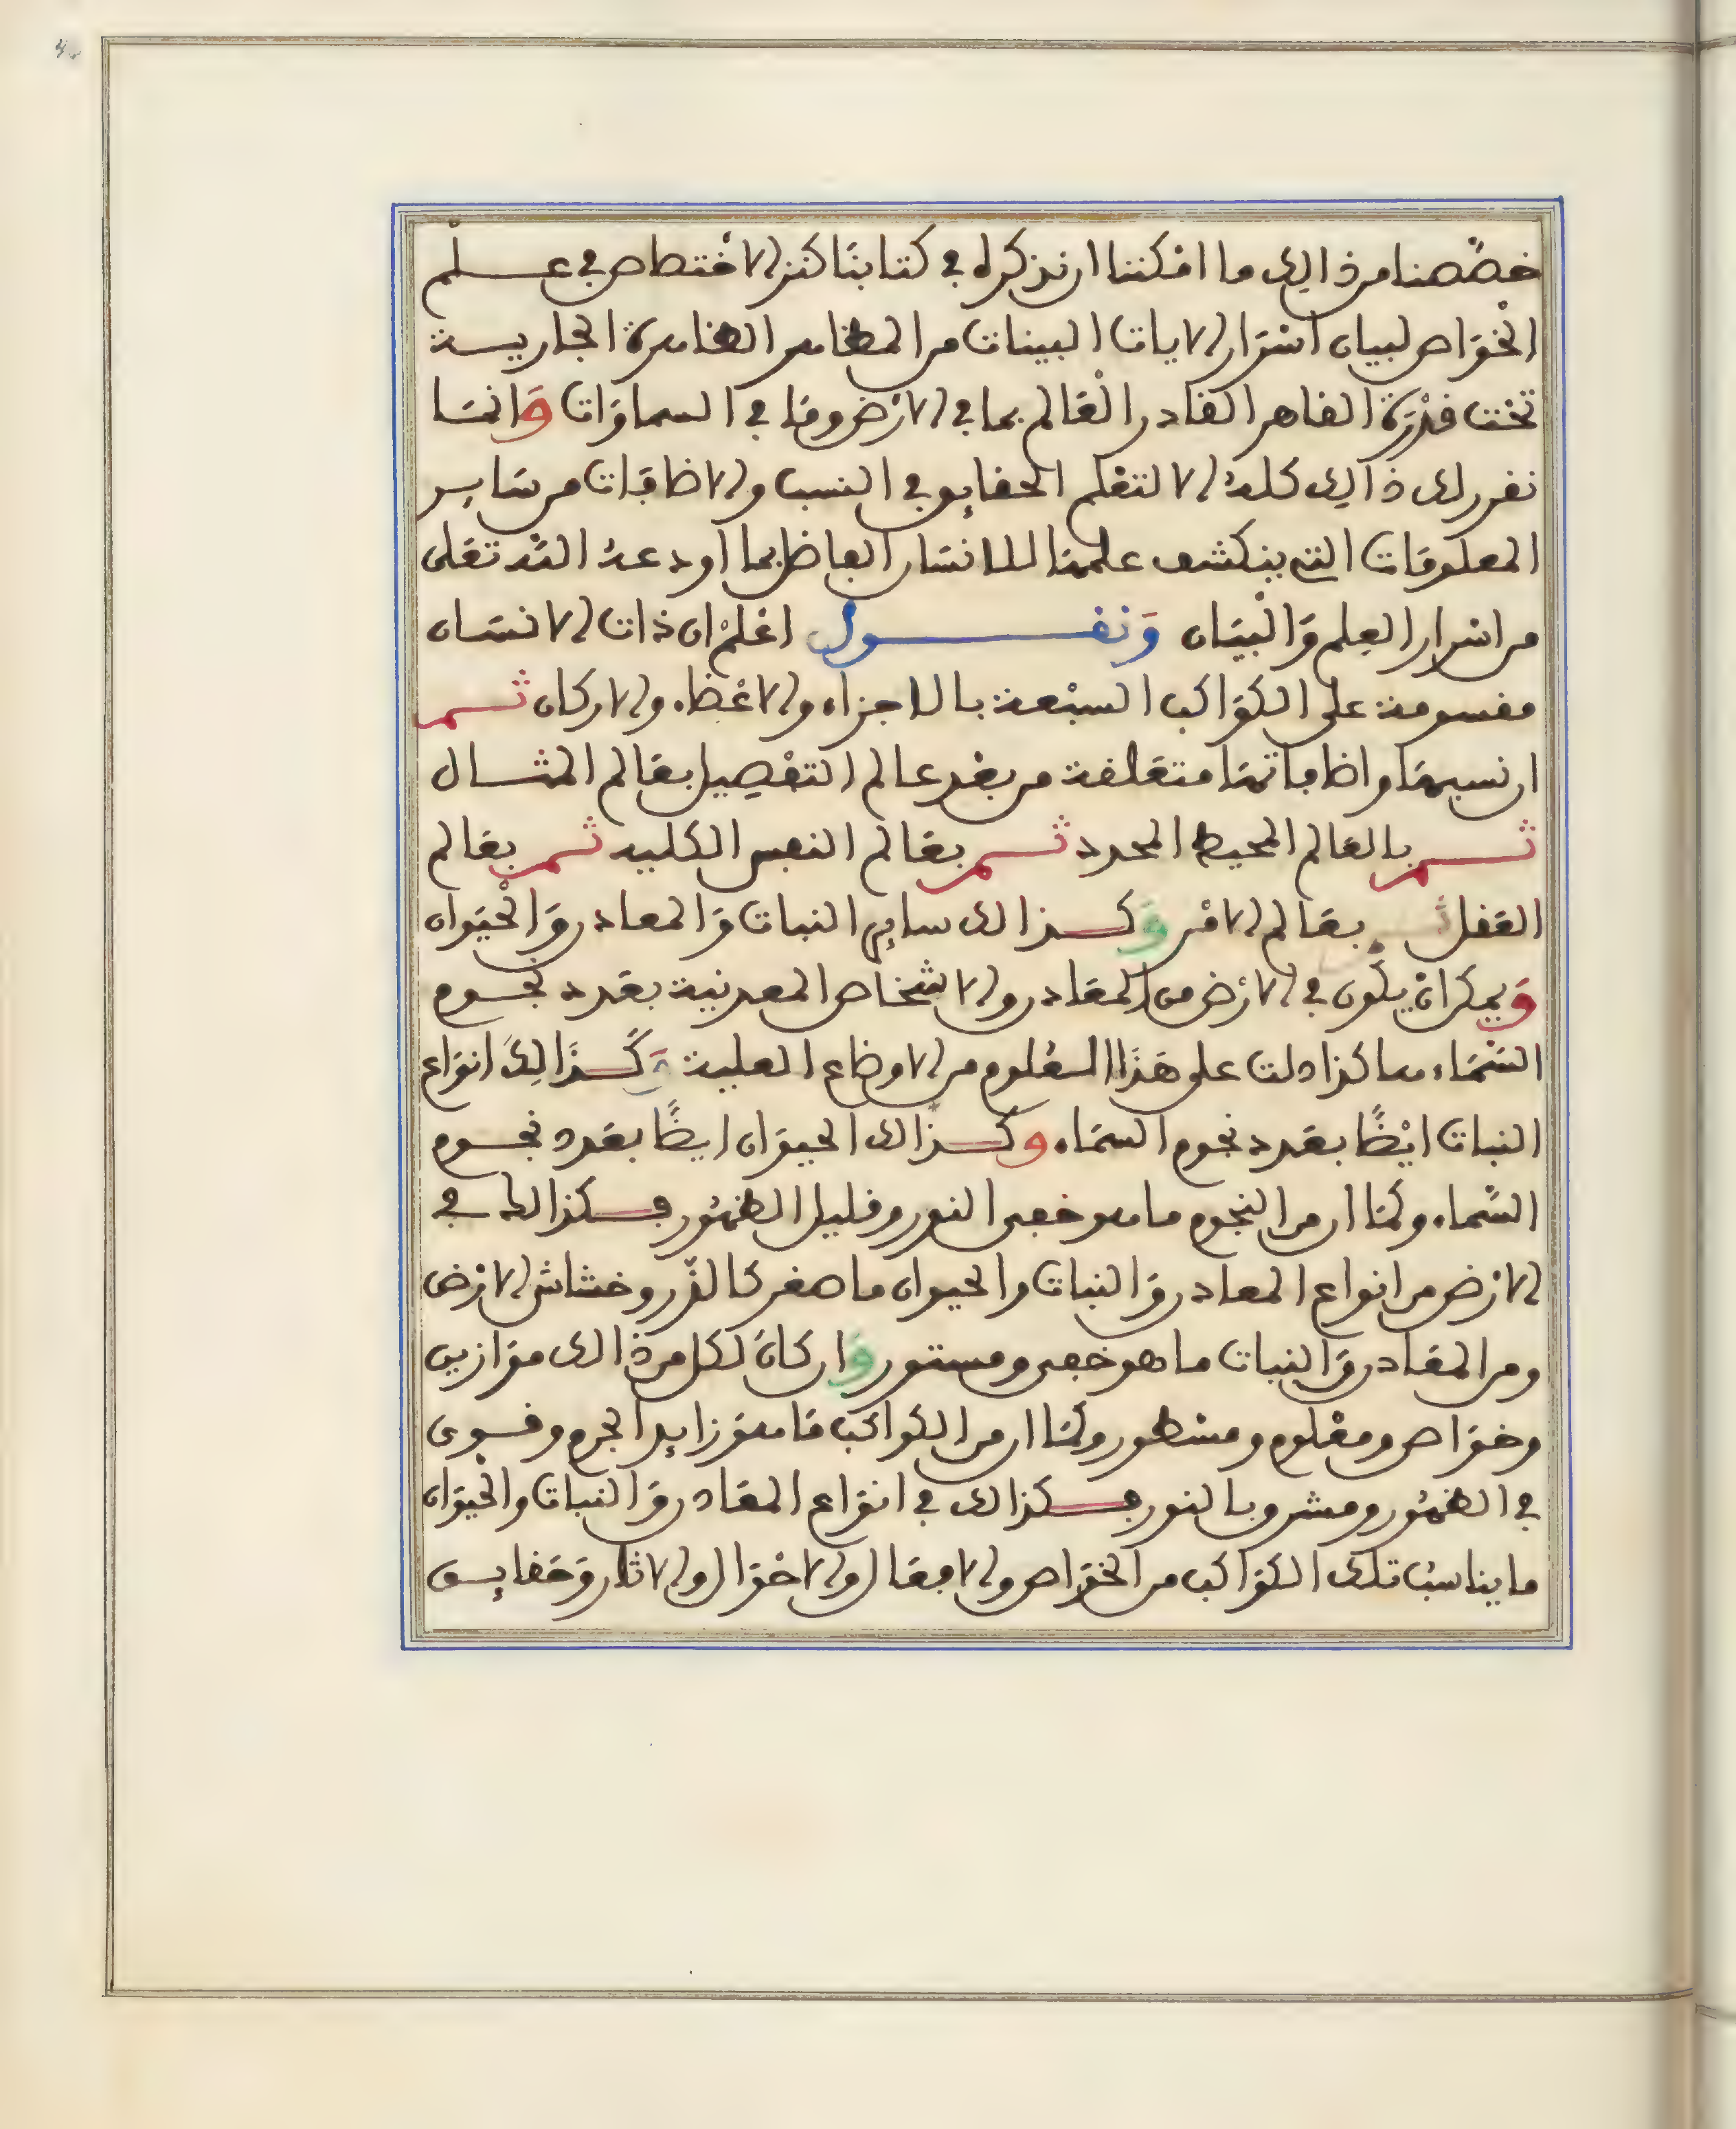 خصّصنا من ذالك ما امكننا ان نذكره في كتابنا كنز الاختصاص في علم
الخواص لبيان اسرار الايات البينات من المظاهر الظاهرة الجارية
تحت قدرة القاهر القادر العالم بما في الارض وما في السماوات وانما
نقرر لك ذالك كله لا لتعلم الحقايق في النسب والاضافات من ساير
المعلومات التي ينكشف علمها للانسان الفاضل بما اودعه الله تعلى
من اسرار العلم والبيان ونقول اعلم ان ذات الانسان
مقسومة على الكواكب السبعة بالاجزاء والاعضاء والاركان ثم
ان نسبها واضافاتها متعلقة من بعد عالم التفصيل بعالم المثال
ثم بالعالم المحيط المحدد ثم بعالم النفس الكلية ثم بعالم
العقل ثم بعالم الامر وكذالك ساير النبات والمعادن والحيوان
ويمكن ان يكون في الارض من المعادن والاشخاص المعدنية بعدد نجوم
السماء هاكذا دلت على هذا العلوم من الاوضاع العلية وكذالك انواع
النبات ايضًا بعدد نجوم السماء وكذالك الحيوان ايضًا بعدد نجوم
السّماء وكما ان من النجوم ما هو خفى النور وقليل الظهور فكذالك في
الارض من انواع المعادن والنبات والحيوان ما صغر كالذّر وخشاش الارض
ومن المعادن والنبات ما هو خفى ومستور وان كان لكل من ذالك موازين
وخواص ومعلوم ومشهور وكما ان من الكواكب ما هو زايد الجرم وقوى
في الظهور ومشرق بالنور فكذالك في انواع المعادن والنبات والحيوان
ما يناسب تلك الكواكب من الخواص والافعال والاحوال والاثار وحقايق